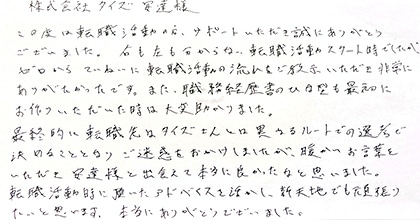 株式会社タイズ 安達様
この度は転職活動の応、サポートいただき誠にありがとう
ございました。右も左も分からない転職活動スタート時でしたが、
ゼロからていねいに転職活動の流れをご教示いただき非常に
ありがたかったです。また、職務経歴書のひな型も最初に
お作りいただいた時は大変助かりました。
最終的に転職先はタイズさんとは異なるルートでの選考で
決めることとなりご迷惑をおかけしましたが、暖かいお言葉を
いただき安達様と出会えて本当に良かったなと思いました。
転職活動時に頂いたアドバイスを活かし、新天地でも頑張り
たいと思います。本当にありがとうございました。